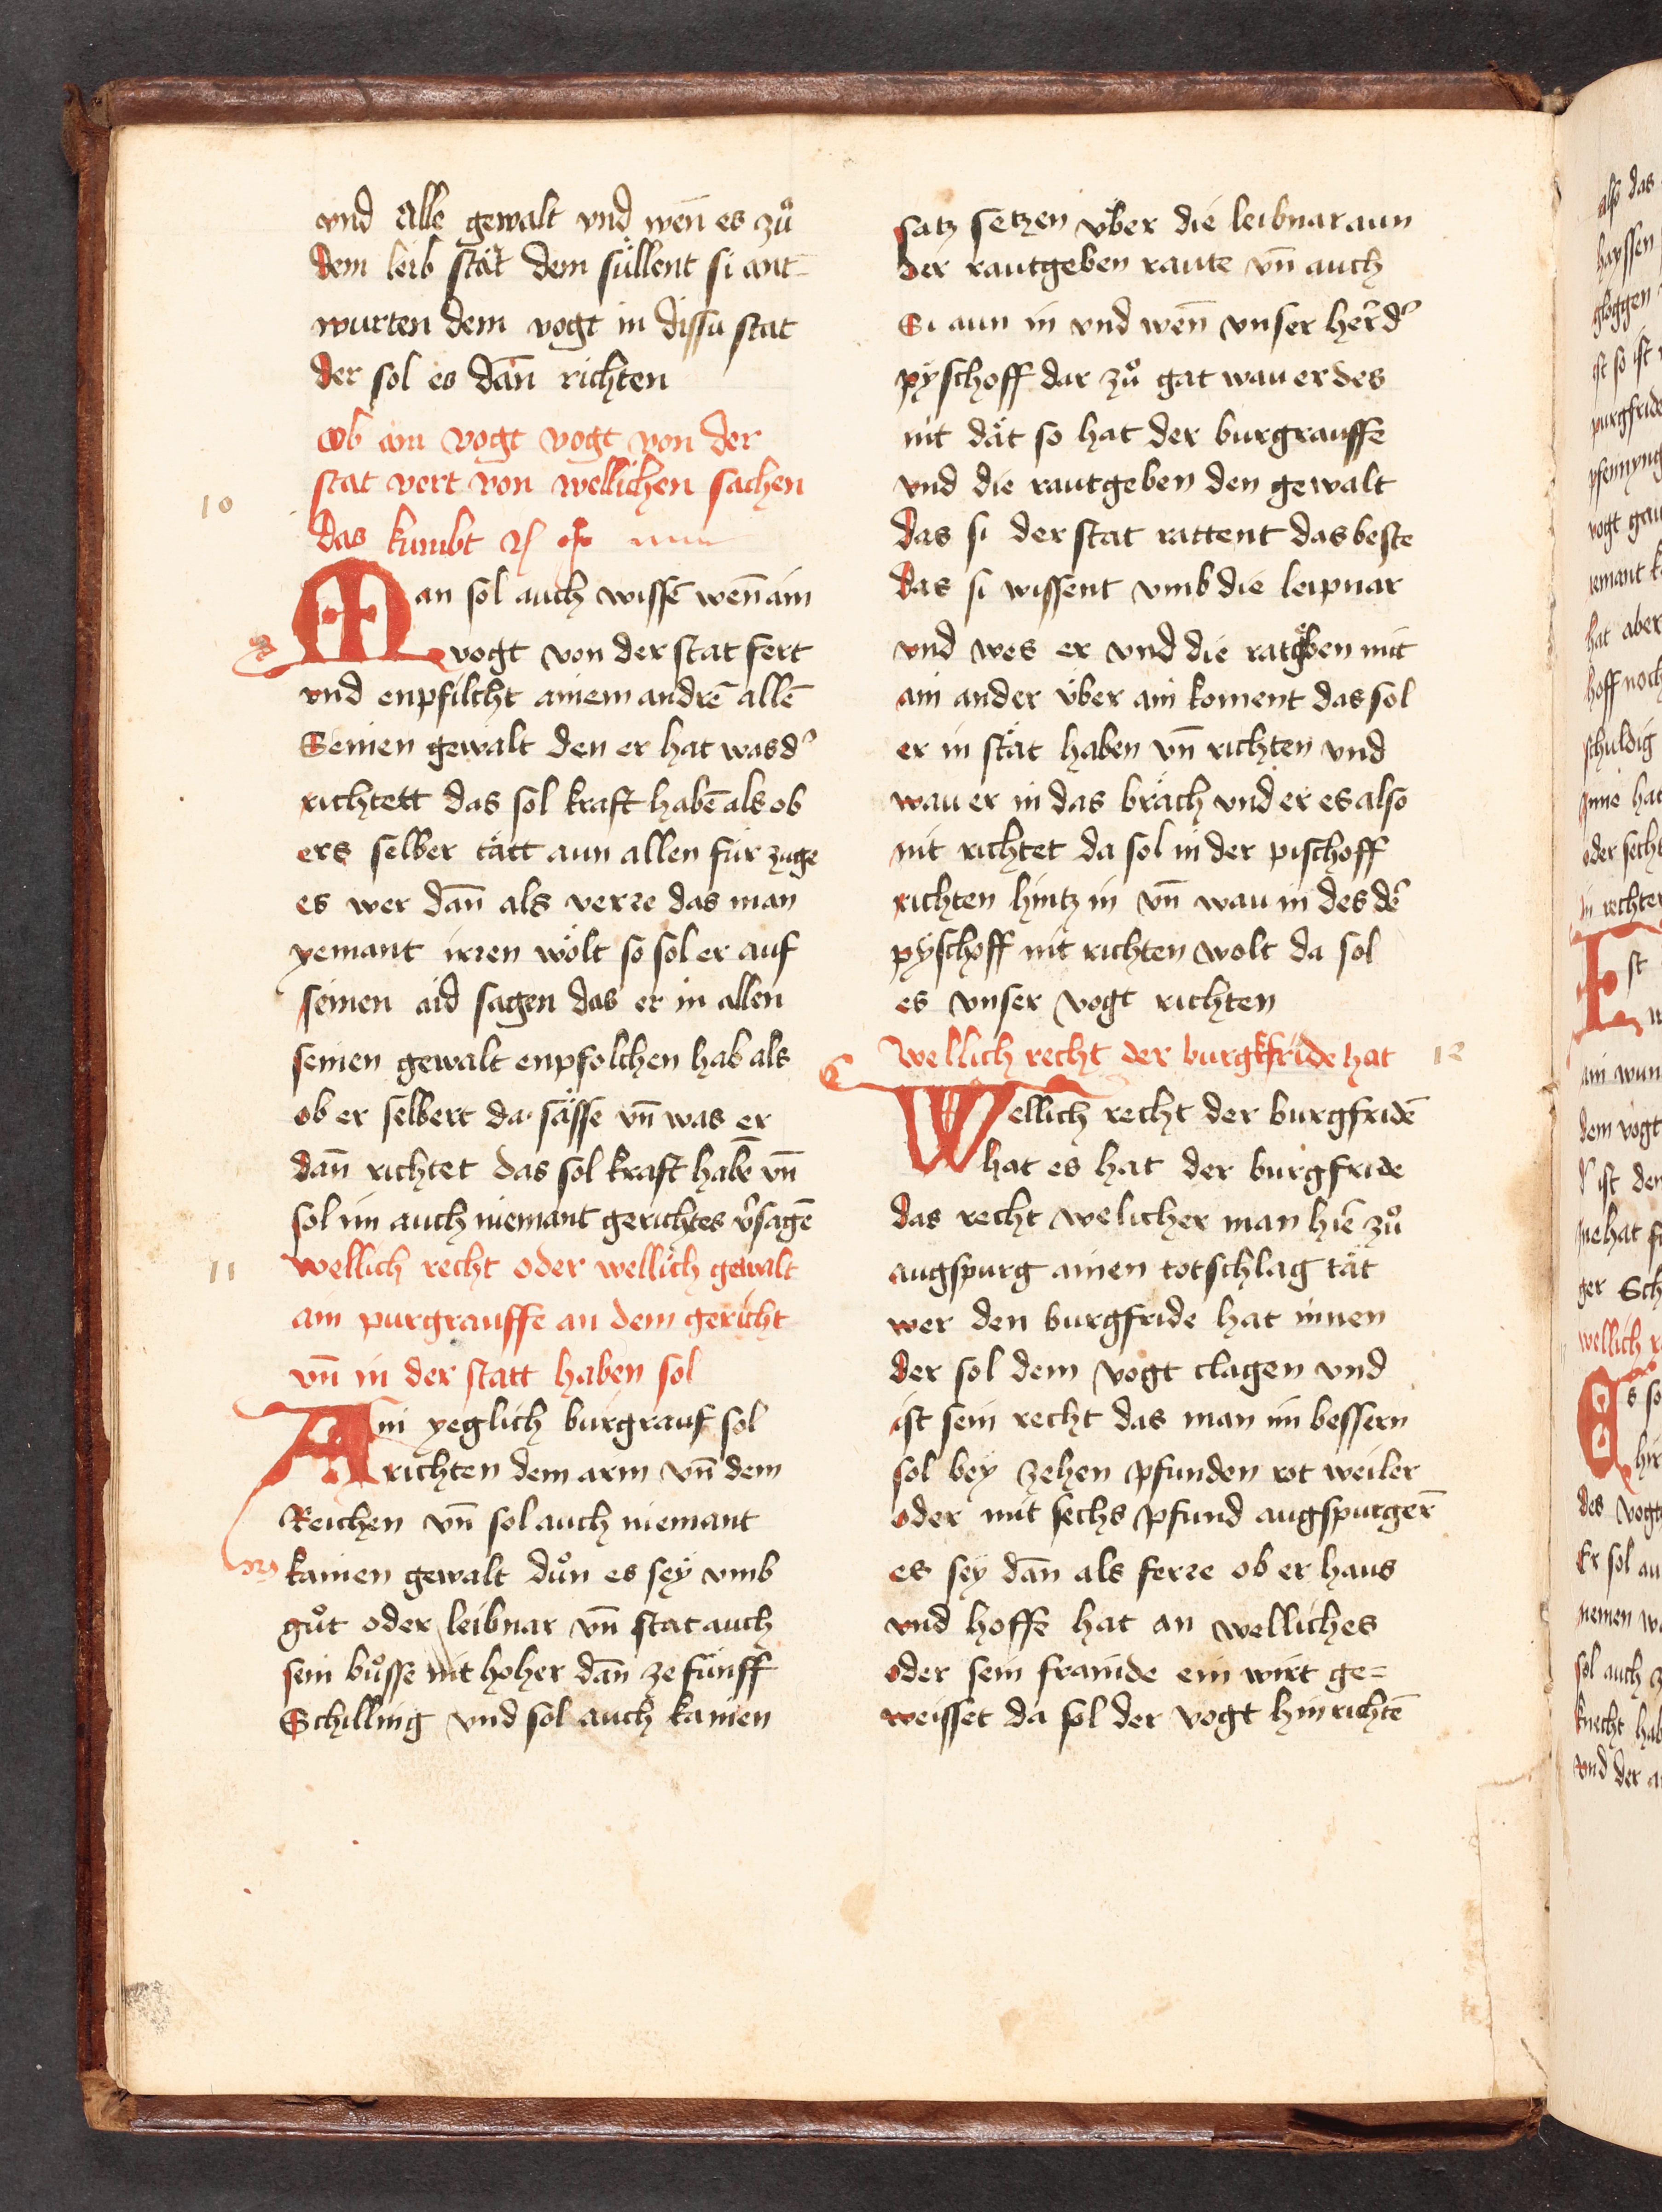 vnd alle gewalt vnd wen̄ es zů
dem leib stät dem süllent si ant-
wurten dem vogt in dissū stat
der sol es dan̄ richten
Ob ain vogt vogt von der
stat vert von wellichen sachen
10
das kumbt
Man sol auch wissē wen̄ ain
vogt von der stat fert
vnd enpfilcht ainem andrē allē
Seinen gewalt den er hat was dˀ
richtett das sol kraft habē als ob
ers selber tätt aun allen für zuge
es wer dan̄ als verre das man
yemant irren wölt so sol er auf
seinen aid sagen das er in allen
seinen gewalt enpfolchen hab als
ob er selbert da sässe vn̄ was er
dan̄ richtet das sol kraft habē vn̄
sol im auch niemant gerichtes v̉sagē
11
wellich recht oder wellich gewalt
ain purgrauffe an dem gericht
vn̄ in der statt haben sol
Ain yeglich burgrauf sol
richten dem arm vn̄ dem
Reichen vn̄ sol auch niemant
kainen gewalt důn es sey vmb
gůt oder leibnar vn̄ stat auch
sein bůsse nit hoher dan̄ ze fünff
Schilling vnd sol auch kainen
satz setzen v̈ber die leibnar aun
der rautgeben raute vn̄ auch
Si aun in vnd wen̄ vnser her̄ dˀ
pyschoff dar zů gat wau er des
nit dät so hat der burgrauffe
vnd die rautgeben den gewalt
das si der stat rattent das beste
das si wissent vmb die leipnar
vnd wes er vnd die ratgeben mit
ain ander v̈ber ain koment das sol
er in stät haben vn̄ richten vnd
wau er in das bräch vnd er es also
nit richtet da sol in der pischoff
richten hintz in vn̄ wau in des dˀ
pyschoff nit richten wolt da sol
es vnser vogt richten
wellich recht der burgkfride hat
12
Wellich recht der burgfridē
hat es hat der burgfride
das recht welicher man hiē zů
augspurg ainen totschlag tät
wer den burgfride hat innen
der sol dem vogt clagen vnd
ist sein recht das man im bessern
sol bey zehen pfunden rot weiler
oder mit sechs pfund augspurger̄
es sey dan̄ als ferre ob er haus
vnd hoffe hat an welliches
oder sein frainde ein wirt ge=
weisset da sol der vogt hin richtē